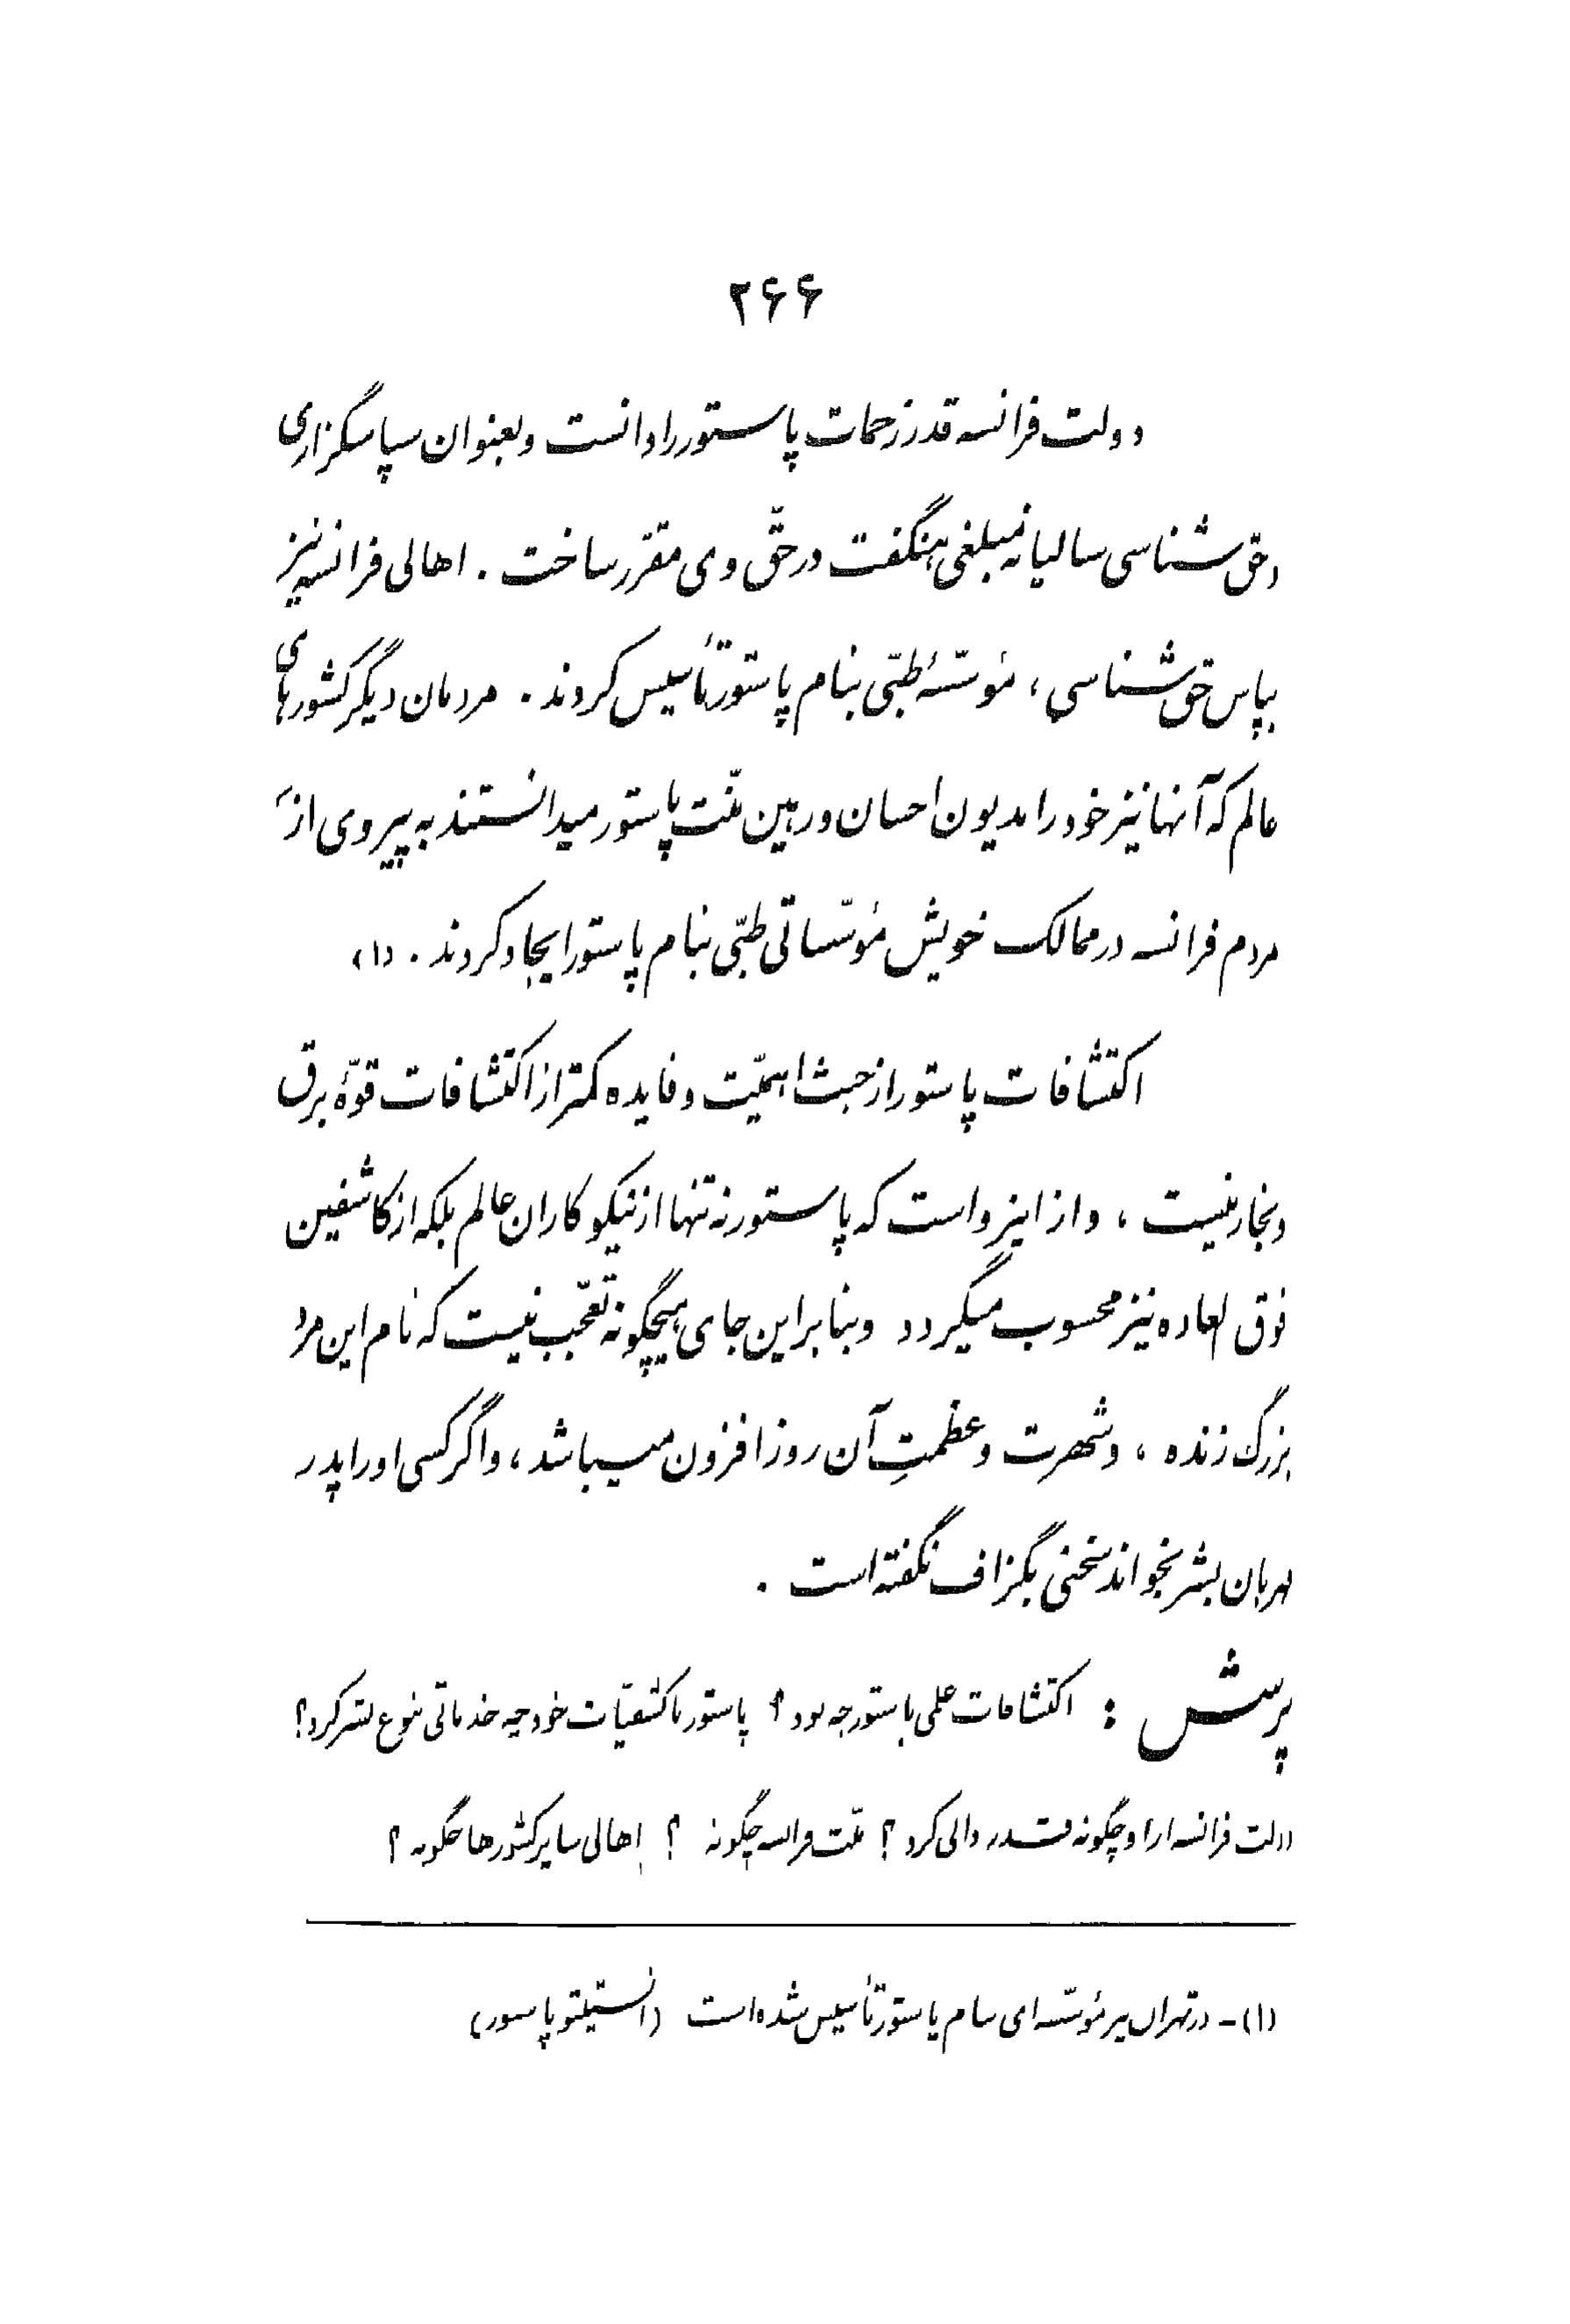 ۲۶۶
دولت فرانسه قدر زحمات پاستور را دانست و بعنوان سپاسگزاری
و حق شناسی سالیانه مبلغی هنگفت در حقّ وی مقرّر ساخت . اهالی فرانسه نیز
بپاس حق شناسی ، مؤسّسهٔ طبّی بنام پاستور تأسیس کردند . مردمان دیگر کشورهای
عالم که آنها نیز خود را مدیون احسان و رهین منّت پاستور میدانستند به پیروی از
مردم فرانسه در ممالک خویش مؤسّساتی طبّی بنام پاستور ایجاد کردند . (۱)
اکتشافات پاستور از حیث اهمیّت و فایده کمتر از اکتشافات قوّهٔ برق
و بخار نیست ، و از اینرو است که پاستور نه تنها از نیکوکاران عالم بلکه از کاشفین
فوق العاده نیز محسوب میگردد و بنابر این جای هیچگونه تعجّب نیست که نام این مرد
بزرگ زنده ، و شهرت و عظمتِ آن روز افزون میباشد ، و اگر کسی او را پدر
مهربان بشر بخواند سخنی بگزاف نگفته است .
پرسش : اکتشافات علمی پاستور چه بود ؟ پاستور با کشفیّات خود چه خدماتی بنوع بشر کرد ؟
دولت فرانسه از او چگونه قدر دانی کرد ؟ ملّت فرانسه چگونه ؟ اهالی سایر کشورها چگونه ؟
(۱) - در تهران نیز مؤسّسه ای بنام پاستور تأسیس شده است (انستیتو پاستور)